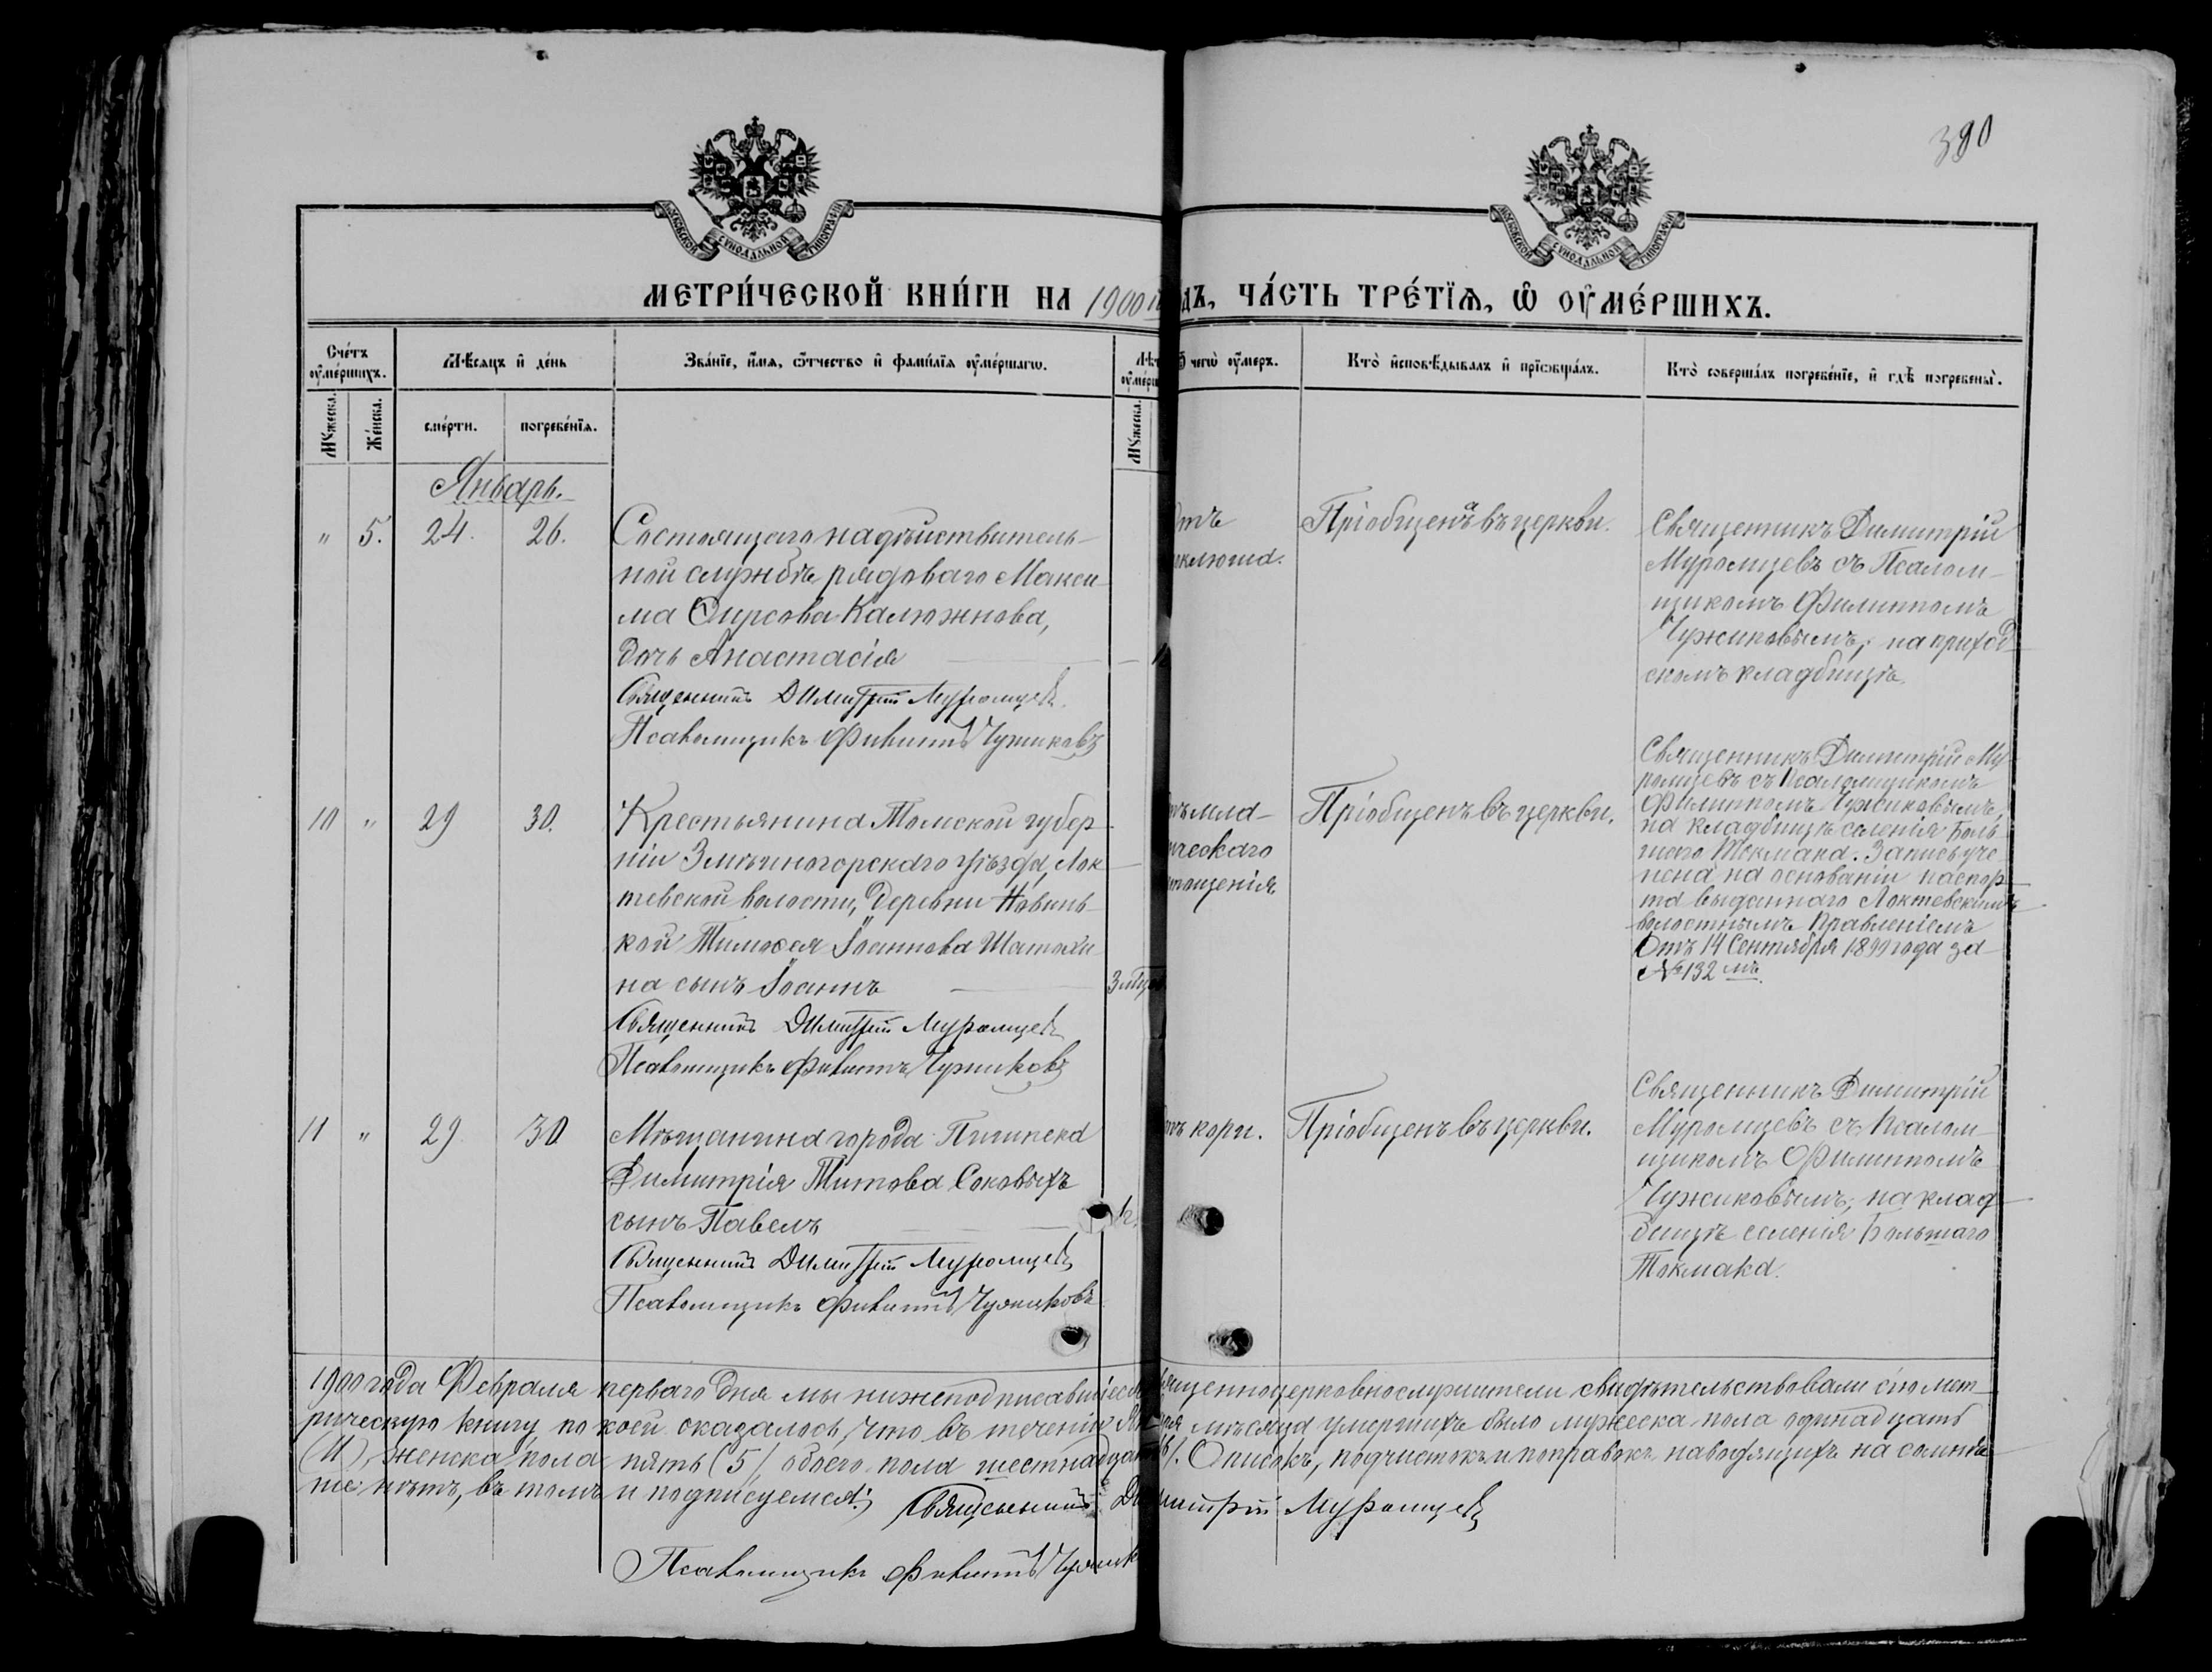 390
МОСКОВСКОЙ СѴНОДАЛЬНОЙ ТИПОГРАФІИ
МОСКОВСКОЙ СѴНОДАЛЬНОЙ ТИПОГРАФІИ
МЕТРИ́ЧЕСКОЙ КНИ́ГИ НА 1900 ДЪ, ЧА́СТЬ ТРЕ́ТЇѦ, Ѡ ОУМЕ́РШИХЪ.
Сче́тъ оумершихъ.
Мѣсяцъ и де́нь
Зва́нїе, и́мя, о́тчество и фами́лїя оуме́ршагѡ.
чегѡ̀ оу́меръ.
Кто̀ исповѣ́дывалъ и прїѡбща́лъ.
Кто̀ соверша́лъ погребе́нїе, и гдѣ̀ погребены̀.
Мꙋжеска.
Же́нска.
сме́рти.
погребе́нїѧ.
Мꙋжеска.
Январь.
" 5. 24. 26.
Состоящаго на дѣйствитель-
ной службѣ рядоваго Макси-
ма Ѳирсова Калюжнова,
дочь Анастасія
Священникъ Димитрій Муромцевъ
Псаломщикъ Филиппъ Чужиковъ
отъ
коклюша.
Пріобщена въ церкви.
Священникъ Димитрій
Муромцевъ съ Псалом-
щикомъ Филиппомъ
Чужиковымъ, на приход-
скомъ кладбищѣ.
10 " 29 30.
Крестьянина Томской губер-
ніи Змѣиногорскаго уѣзда, Лок-
тевской волости, деревни Новень-
кой Тимоѳея Іоаннова Шатохи-
на сынъ Іоаннъ
3 мѣс
Священникъ Димитрій Муромцевъ
Псаломщикъ Филиппъ Чужиковъ
отъ мла-
ческаго
истощенія
Пріобщенъ въ церкви.
Священникъ Димитрій Му-
ромцевъ съ Псаломщикомъ
Филиппомъ Чужиковымъ,
на кладбищѣ селенія Боль-
шого Токмака. Запись учи-
нена на основаніи паспор-
та выданнаго Локтевскимъ
волостнымъ Правленіемъ
Отъ 14 Сентября 1899 года за
№ 132 мъ.
11 " 29 30
Мѣщанина города Пишпека
Димитрія Титова Соковыхъ
сынъ Павелъ
Священникъ Димитрій Муромцевъ
Псаломщикъ Филиппъ Чужиковъ
отъ кори.
Пріобщенъ въ церкви.
Священникъ Димитрій
Муромцевъ съ Псалом-
щикомъ Филиппомъ
Чужиковымъ, на клад-
бищѣ селенія Большаго
Токмака.
1900 года Февраля перваго дня мы нижеподписавшіеся священноцерковнослужители свидѣтельствовали сію мет-
рическую книгу, по коей оказалось, что въ теченіи Января мѣсяца умершихъ было мужеска пола одинадцать
(11), женска пола пять (5), обоего пола шестнадцать (16). Описокъ, подчистокъ и поправокъ наводящихъ на сомнѣ-
ніе нѣтъ, въ томъ и подписуемся: Священникъ Димитрій Муромцевъ
Псаломщикъ Филиппъ Чужик